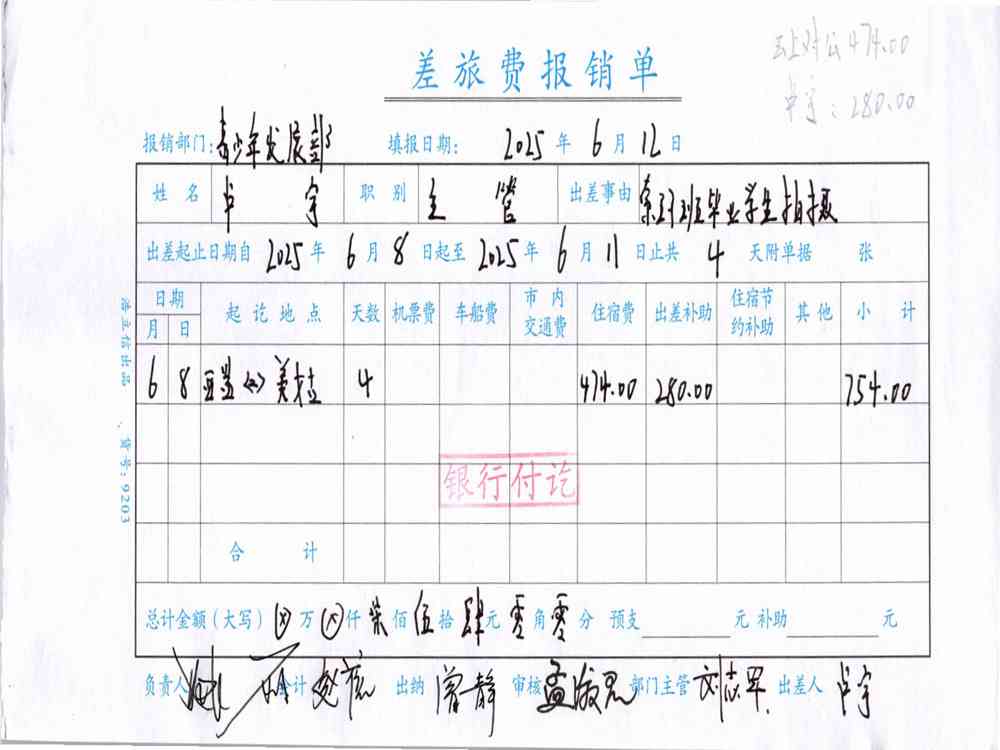 差旅费报销单
对公474.00
卢宇：280.00
报销部门：青少年发展部 填报日期：2025年6月12日
姓名 卢宇 职别 主管 出差事由 毕业学生拍摄
出差起止日期自2025年6月8日起至2025年6月11日止共4天附单据 张
日期 起讫地点 天数 机票费 车船费 市内交通费 住宿费 出差补助 住宿节约补助 其他 小计
月 日
6 8 4 474.00 280.00 754.00
银行付讫
合计
总计金额（大写）⊗万⊗仟柒佰伍拾肆元零角零分 预支 元 补助 元
负责人 会计 出纳 曾静 审核 部门主管 刘志军 出差人 卢宇
货号：9203